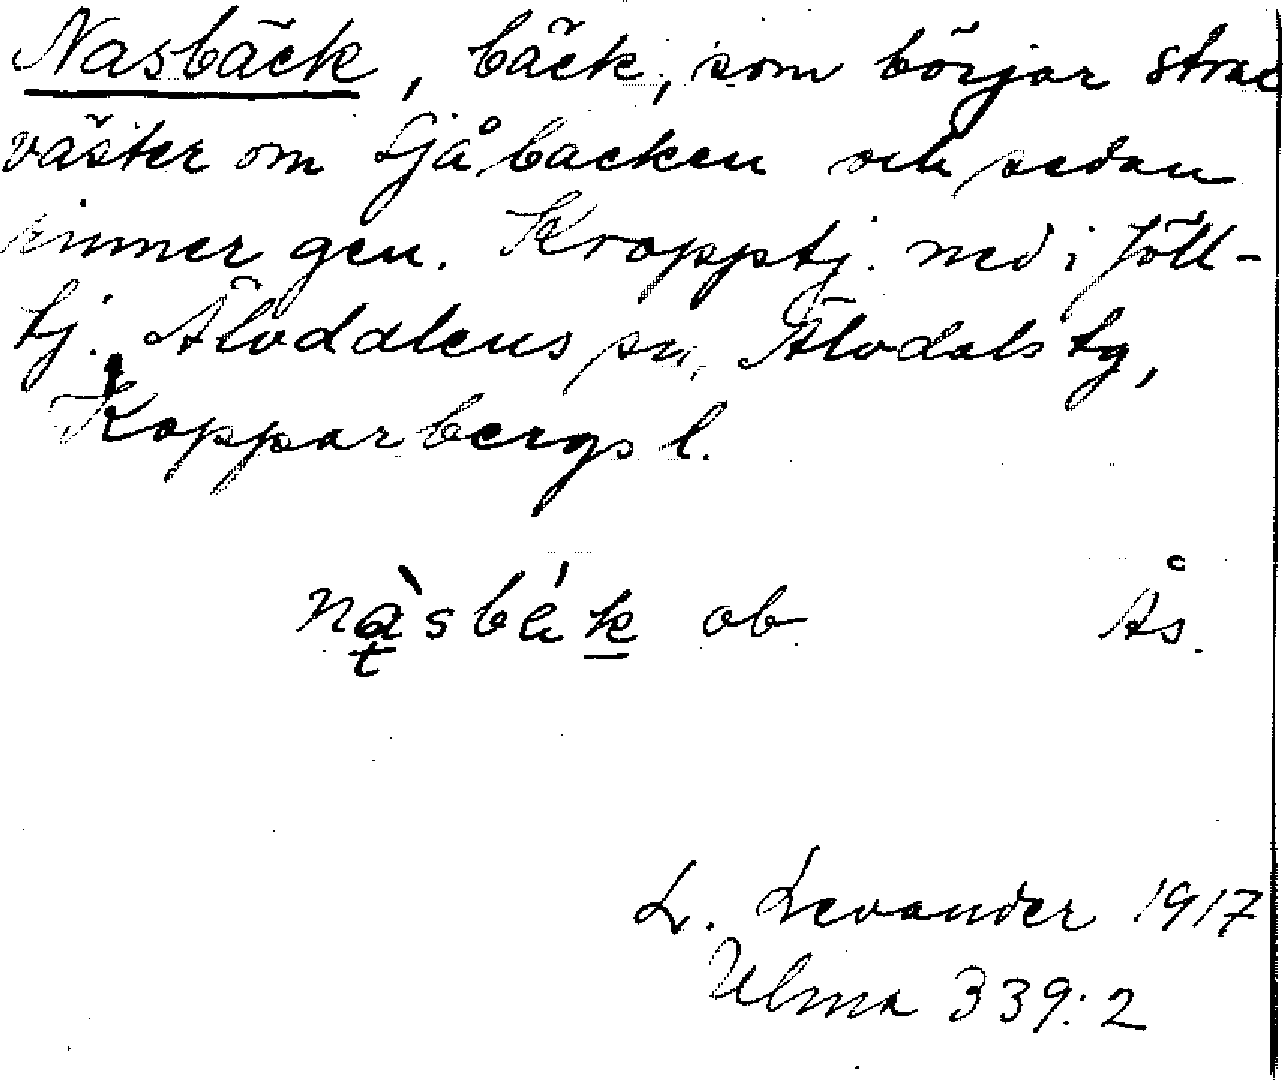 Nasbäck, bäck, som börjar strax
väster om Sjåbacken och sedan
rinner gen. Kropptj. ned i Jöll-
tj. Älvdalens sn, Älvdals tg,
Kopparbergs l.
nàsbä́k ob Ås.
L. Levander 1917
Ulma 339:2